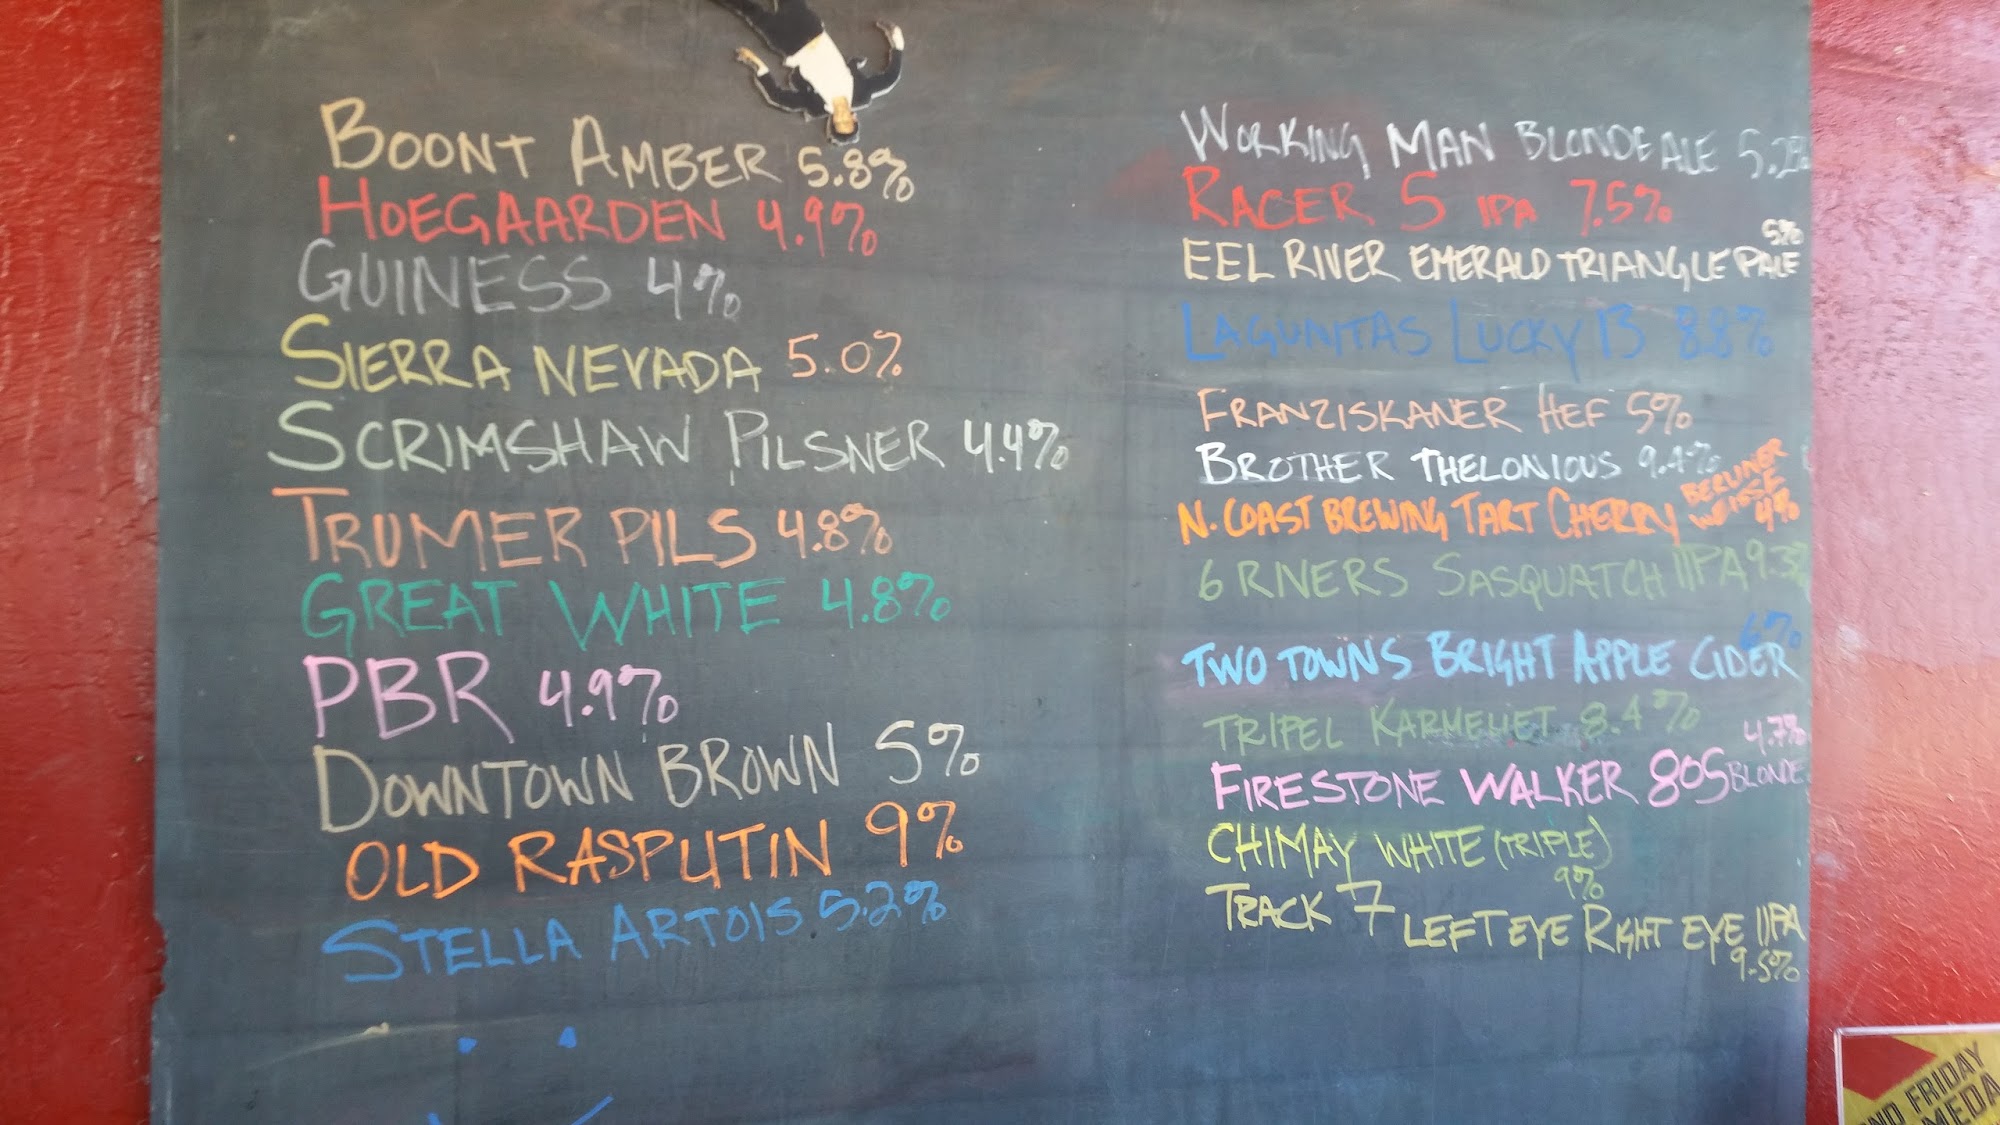 BOONT AMBER 5.8%
HOEGAARDEN 4.9%
GUINESS 4%
SIERRA NEVADA 5.0%
SCRIMSHAW PILSNER 4.4%
TRUMER PILS 4.8%
GREAT WHITE 4.8%
PBR 4.9%
DOWNTOWN BROWN 5%
OLD RASPUTIN 9%
STELLA ARTOIS 5.2%
WORKING MAN BLONDE ALE 5.2%
RACER 5 IPA 7.5%
EEL RIVER EMERALD TRIANGLE PALE 5%
LAGUNITAS LUCKY 13 8.8%
FRANZISKANER HEF 5%
BROTHER THELONIOUS 9.4%
N. COAST BREWING TART CHERRY BERLINER WEISSE 4%
6 RIVERS SASQUATCH IIPA 9.3%
TWO TOWNS BRIGHT APPLE CIDER 6%
TRIPEL KARMELIET 8.4%
FIRESTONE WALKER 805 BLONDE 4.7%
CHIMAY WHITE (TRIPLE) 9%
TRACK 7 LEFT EYE RIGHT EYE IIPA 9.5%
FRIDAY